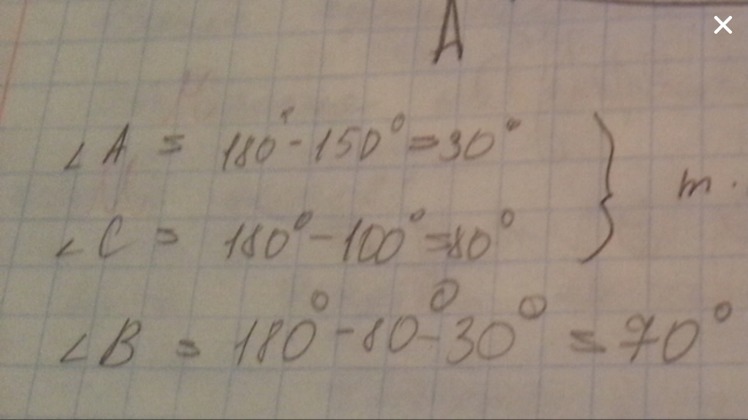 A
∠A = 180° - 150° = 30°
∠C = 180° - 100° = 80° } m.
∠B = 180° - 80° - 30° = 70°